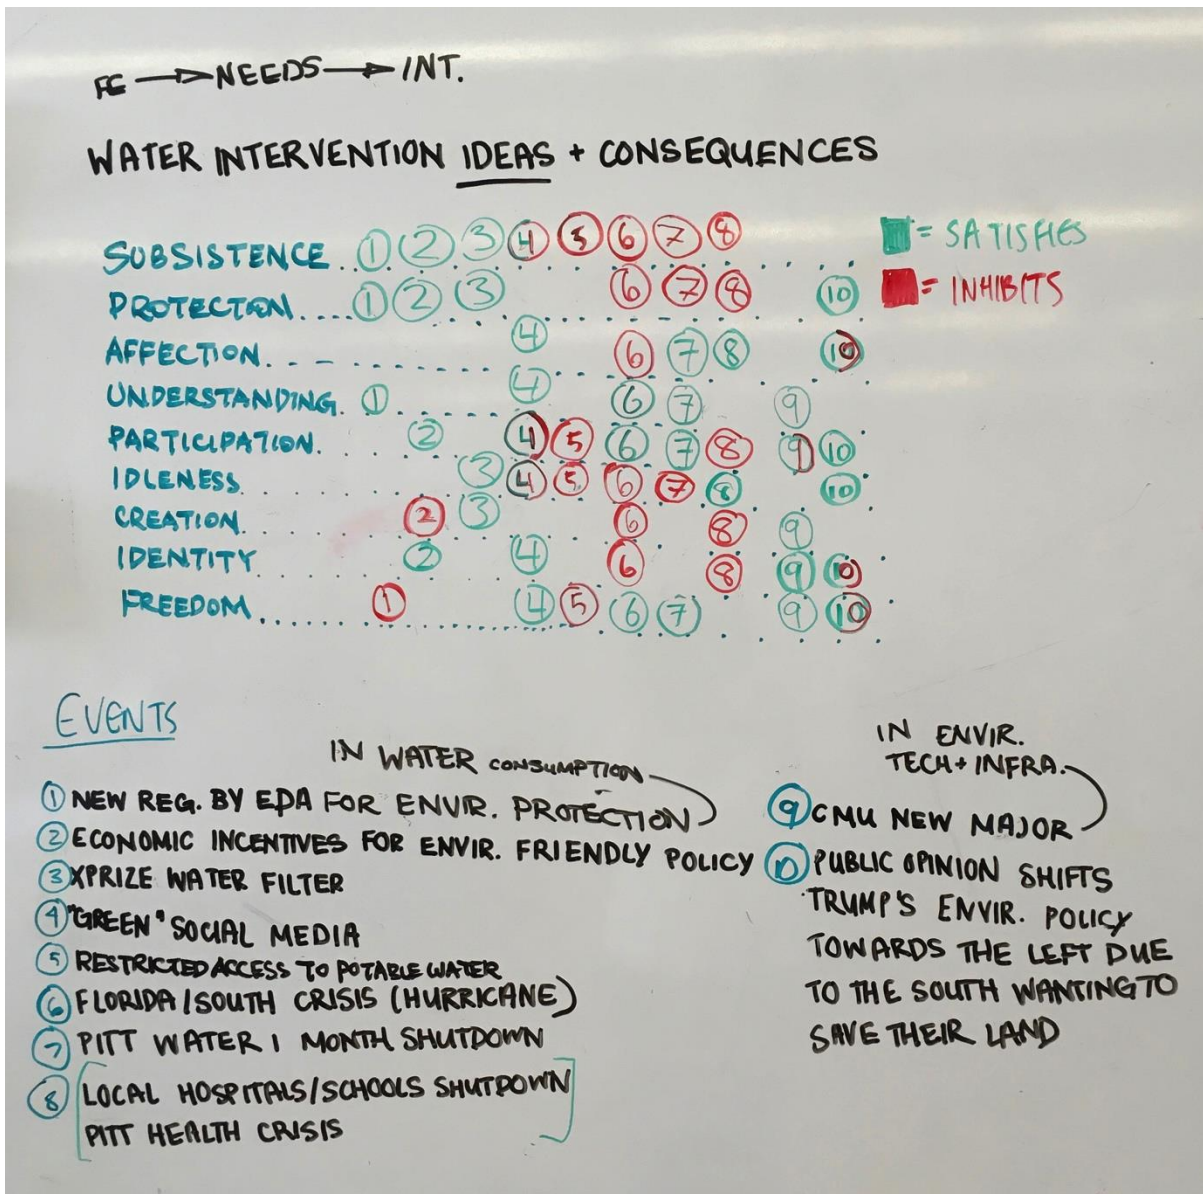 FC → NEEDS → INT.
WATER INTERVENTION IDEAS + CONSEQUENCES
SUBSISTENCE .. 1 2 3 4 5 6 7 8
PROTECTON .... 1 2 3 6 7 8 10
AFFECTION. 4 6 7 8 10
UNDERSTANDING. 1 4 6 7 9
PARTICIPATION. 2 4 5 6 7 8 9 10
IDLENESS 3 4 5 6 7 8 10
CREATION 2 3 6 8 9
IDENTITY 2 4 6 8 9 10
FREEDOM 1 4 5 6 7 9 10
= SATISFIES
= INHIBITS
EVENTS
IN WATER CONSUMPTION
1 NEW REG. BY EPA FOR ENVIR. PROTECTION
2 ECONOMIC INCENTIVES FOR ENVIR. FRIENDLY POLICY
3 XPRIZE WATER FILTER
4 "GREEN" SOCIAL MEDIA
5 RESTRICTED ACCESS TO POTABLE WATER
6 FLORIDA / SOUTH CRISIS (HURRICANE)
7 PITT WATER 1 MONTH SHUTDOWN
8 LOCAL HOSPITALS/SCHOOLS SHUTDOWN
PITT HEALTH CRISIS
IN ENVIR.
TECH + INFRA.
9 CMU NEW MAJOR
10 PUBLIC OPINION SHIFTS
TRUMP'S ENVIR. POLICY
TOWARDS THE LEFT DUE
TO THE SOUTH WANTING TO
SAVE THEIR LAND